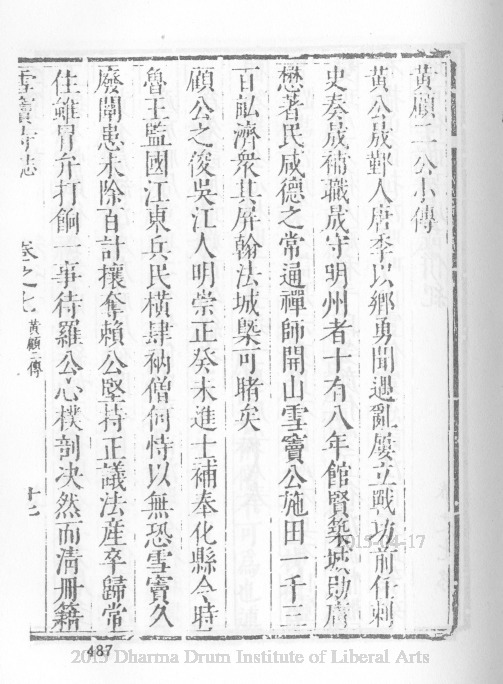 黃顧二公小傳
黃公晟鄞人唐季以鄉勇聞遇亂屢立戰功前任刺
史奏晟補職晟守明州者十有八年館賢築城勛庸
懋著民咸德之常通禪師開山雪竇公施田一千三
百畝濟眾其屏翰法城槩可睹矣
顧公之俊吳江人明崇正癸未進士補奉化縣令時
魯王監國江東兵民橫肆衲僧何恃以無恐雪竇久
廢閘患未除百計攘奪賴公堅持正議法產卒歸常
住雖胃弁打餉一事待羅公心樸剖決然而清冊籍
雪竇寺志
卷之七
黃顧二傳
十七
2015-04-17
487
2015 Dharma Drum Institute of Liberal Arts